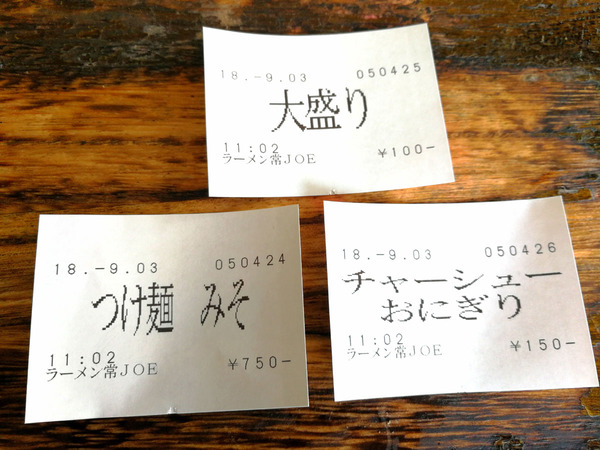 18.-9.03 050425
大盛り
11:02
ラーメン常JOE ¥100-
18.-9.03 050424
つけ麺 みそ
11:02
ラーメン常JOE ¥750-
18.-9.03 050426
チャーシュー
おにぎり
11:02
ラーメン常JOE ¥150-